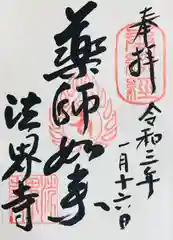 奉拝
令和二年
一月十六日
薬師如来
法界寺